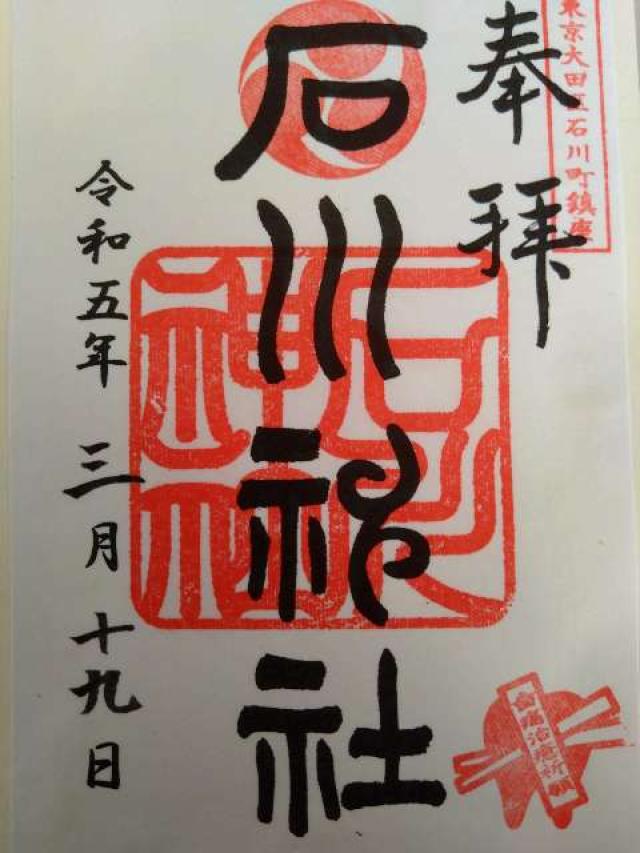 東京大田区石川町鎮座
奉拝
石川神社
石川
神社
令和五年 三月十九日
歯痛治癒祈願